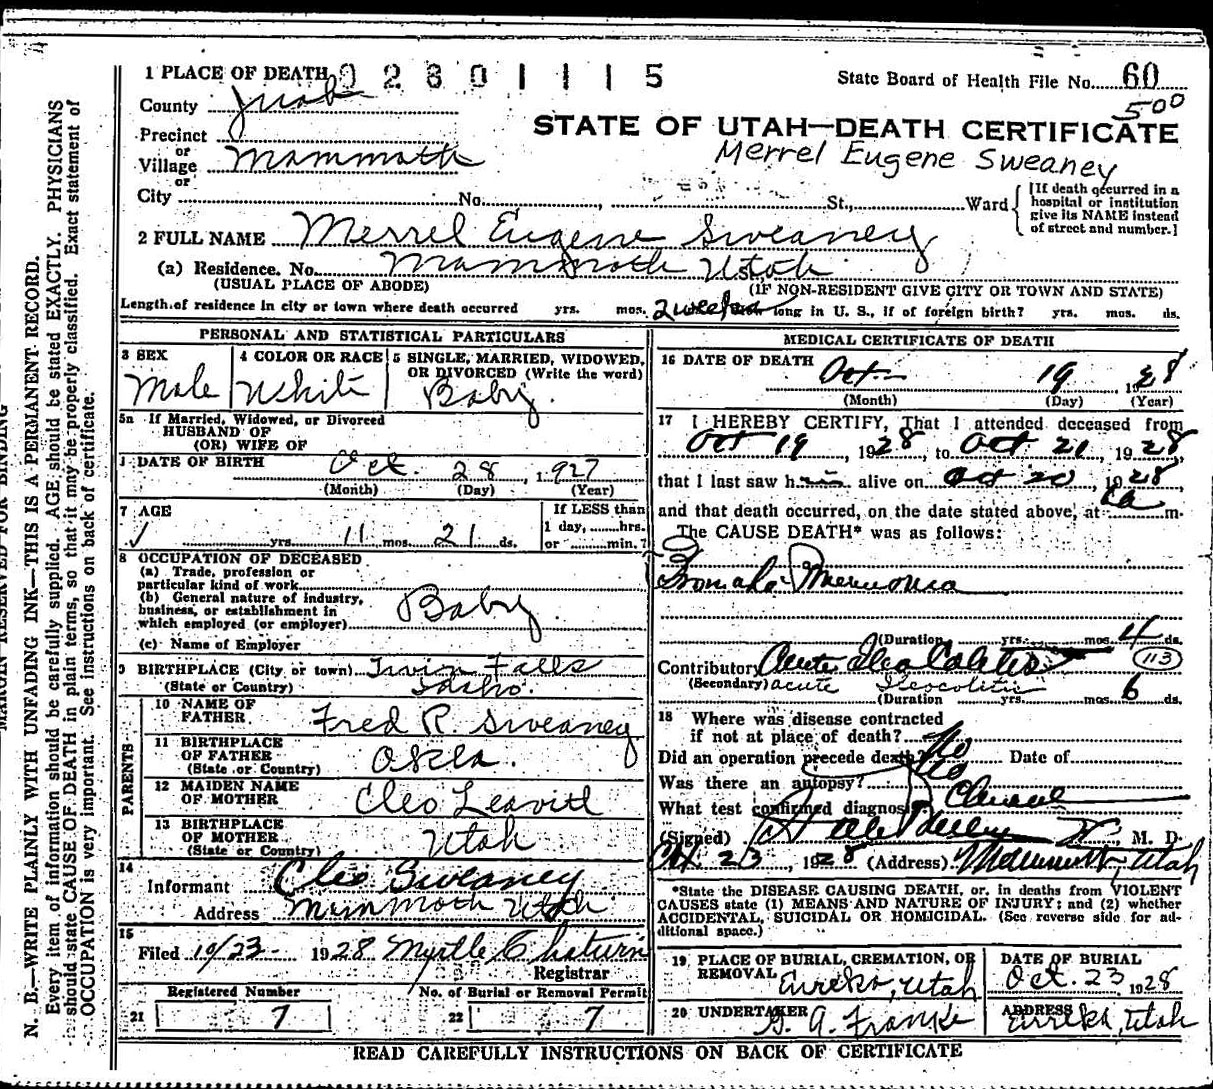 1 PLACE OF DEATH 0 2 8 0 1 1 1 5
State Board of Health File No. 60
500
County Juab
STATE OF UTAH—DEATH CERTIFICATE
Merrel Eugene Sweaney
Precinct
or
Village Mammoth
or
City No. , St., Ward
[If death occurred in a
hospital or institution
give its NAME instead
of street and number.]
2 FULL NAME Merrel Eugene Sweaney
(a) Residence. No. Mammoth Utah St.
(USUAL PLACE OF ABODE) (IF NON-RESIDENT GIVE CITY OR TOWN AND STATE)
Length of residence in city or town where death occurred yrs. mos. 2 weeks long in U. S., if of foreign birth? yrs. mos. ds.
PERSONAL AND STATISTICAL PARTICULARS
3 SEX
Male
4 COLOR OR RACE
White
5 SINGLE, MARRIED, WIDOWED,
OR DIVORCED (Write the word)
Baby.
5a If Married, Widowed, or Divorced
HUSBAND OF
(OR) WIFE OF
DATE OF BIRTH Oct. 28, 1927
(Month) (Day) (Year)
7 AGE
yrs. 11 mos. 21 ds.
If LESS than
1 day, hrs.
or min.?
8 OCCUPATION OF DECEASED
(a) Trade, profession or
particular kind of work
(b) General nature of industry,
business, or establishment in
which employed (or employer) Baby.
(c) Name of Employer
9 BIRTHPLACE (City or town) Twin Falls
(State or Country) Idaho.
PARENTS
10 NAME OF
FATHER Fred R. Sweaney
11 BIRTHPLACE
OF FATHER
(State or Country) Okla.
12 MAIDEN NAME
OF MOTHER Cleo Leavitt
13 BIRTHPLACE
OF MOTHER
(State or Country) Utah
14
Informant Cleo Sweaney
Address Mammoth Utah
15
Filed 10/23 1928 Myrtle
Registrar
Registered Number
21 7
No. of Burial or Removal Permit
22 7
MEDICAL CERTIFICATE OF DEATH
16 DATE OF DEATH Oct 19 1928
(Month) (Day) (Year)
17 I HEREBY CERTIFY, That I attended deceased from
Oct 19, 1928, to Oct 21, 1928,
that I last saw him alive on Oct 20, 1928,
and that death occurred, on the date stated above, at m.
The CAUSE DEATH* was as follows:
Pneumonia
(Duration yrs. mos. 4 ds.
Contributory Acute Ileo Colitis 113
(Secondary) acute Ileocolitis
(Duration yrs. mos. 6 ds.
18 Where was disease contracted
if not at place of death?
Did an operation precede death? No Date of
Was there an autopsy? No
What test confirmed diagnosis?
(Signed) M. D.
Oct 23, 1928 (Address) Mammoth, Utah
*State the DISEASE CAUSING DEATH, or, in deaths from VIOLENT
CAUSES state (1) MEANS AND NATURE OF INJURY; and (2) whether
ACCIDENTAL, SUICIDAL OR HOMICIDAL. (See reverse side for ad-
ditional space.)
19 PLACE OF BURIAL, CREMATION, OR
REMOVAL Eureka, Utah
DATE OF BURIAL
Oct. 23 1928
20 UNDERTAKER
G. A. Franke
ADDRESS
Eureka, Utah
READ CAREFULLY INSTRUCTIONS ON BACK OF CERTIFICATE
MARGIN RESERVED FOR BINDING
N. B.—WRITE PLAINLY WITH UNFADING INK—THIS IS A PERMANENT RECORD.
Every item of information should be carefully supplied. AGE should be stated EXACTLY. PHYSICIANS
should state CAUSE OF DEATH in plain terms, so that it may be properly classified. Exact statement of
OCCUPATION is very important. See instructions on back of certificate.